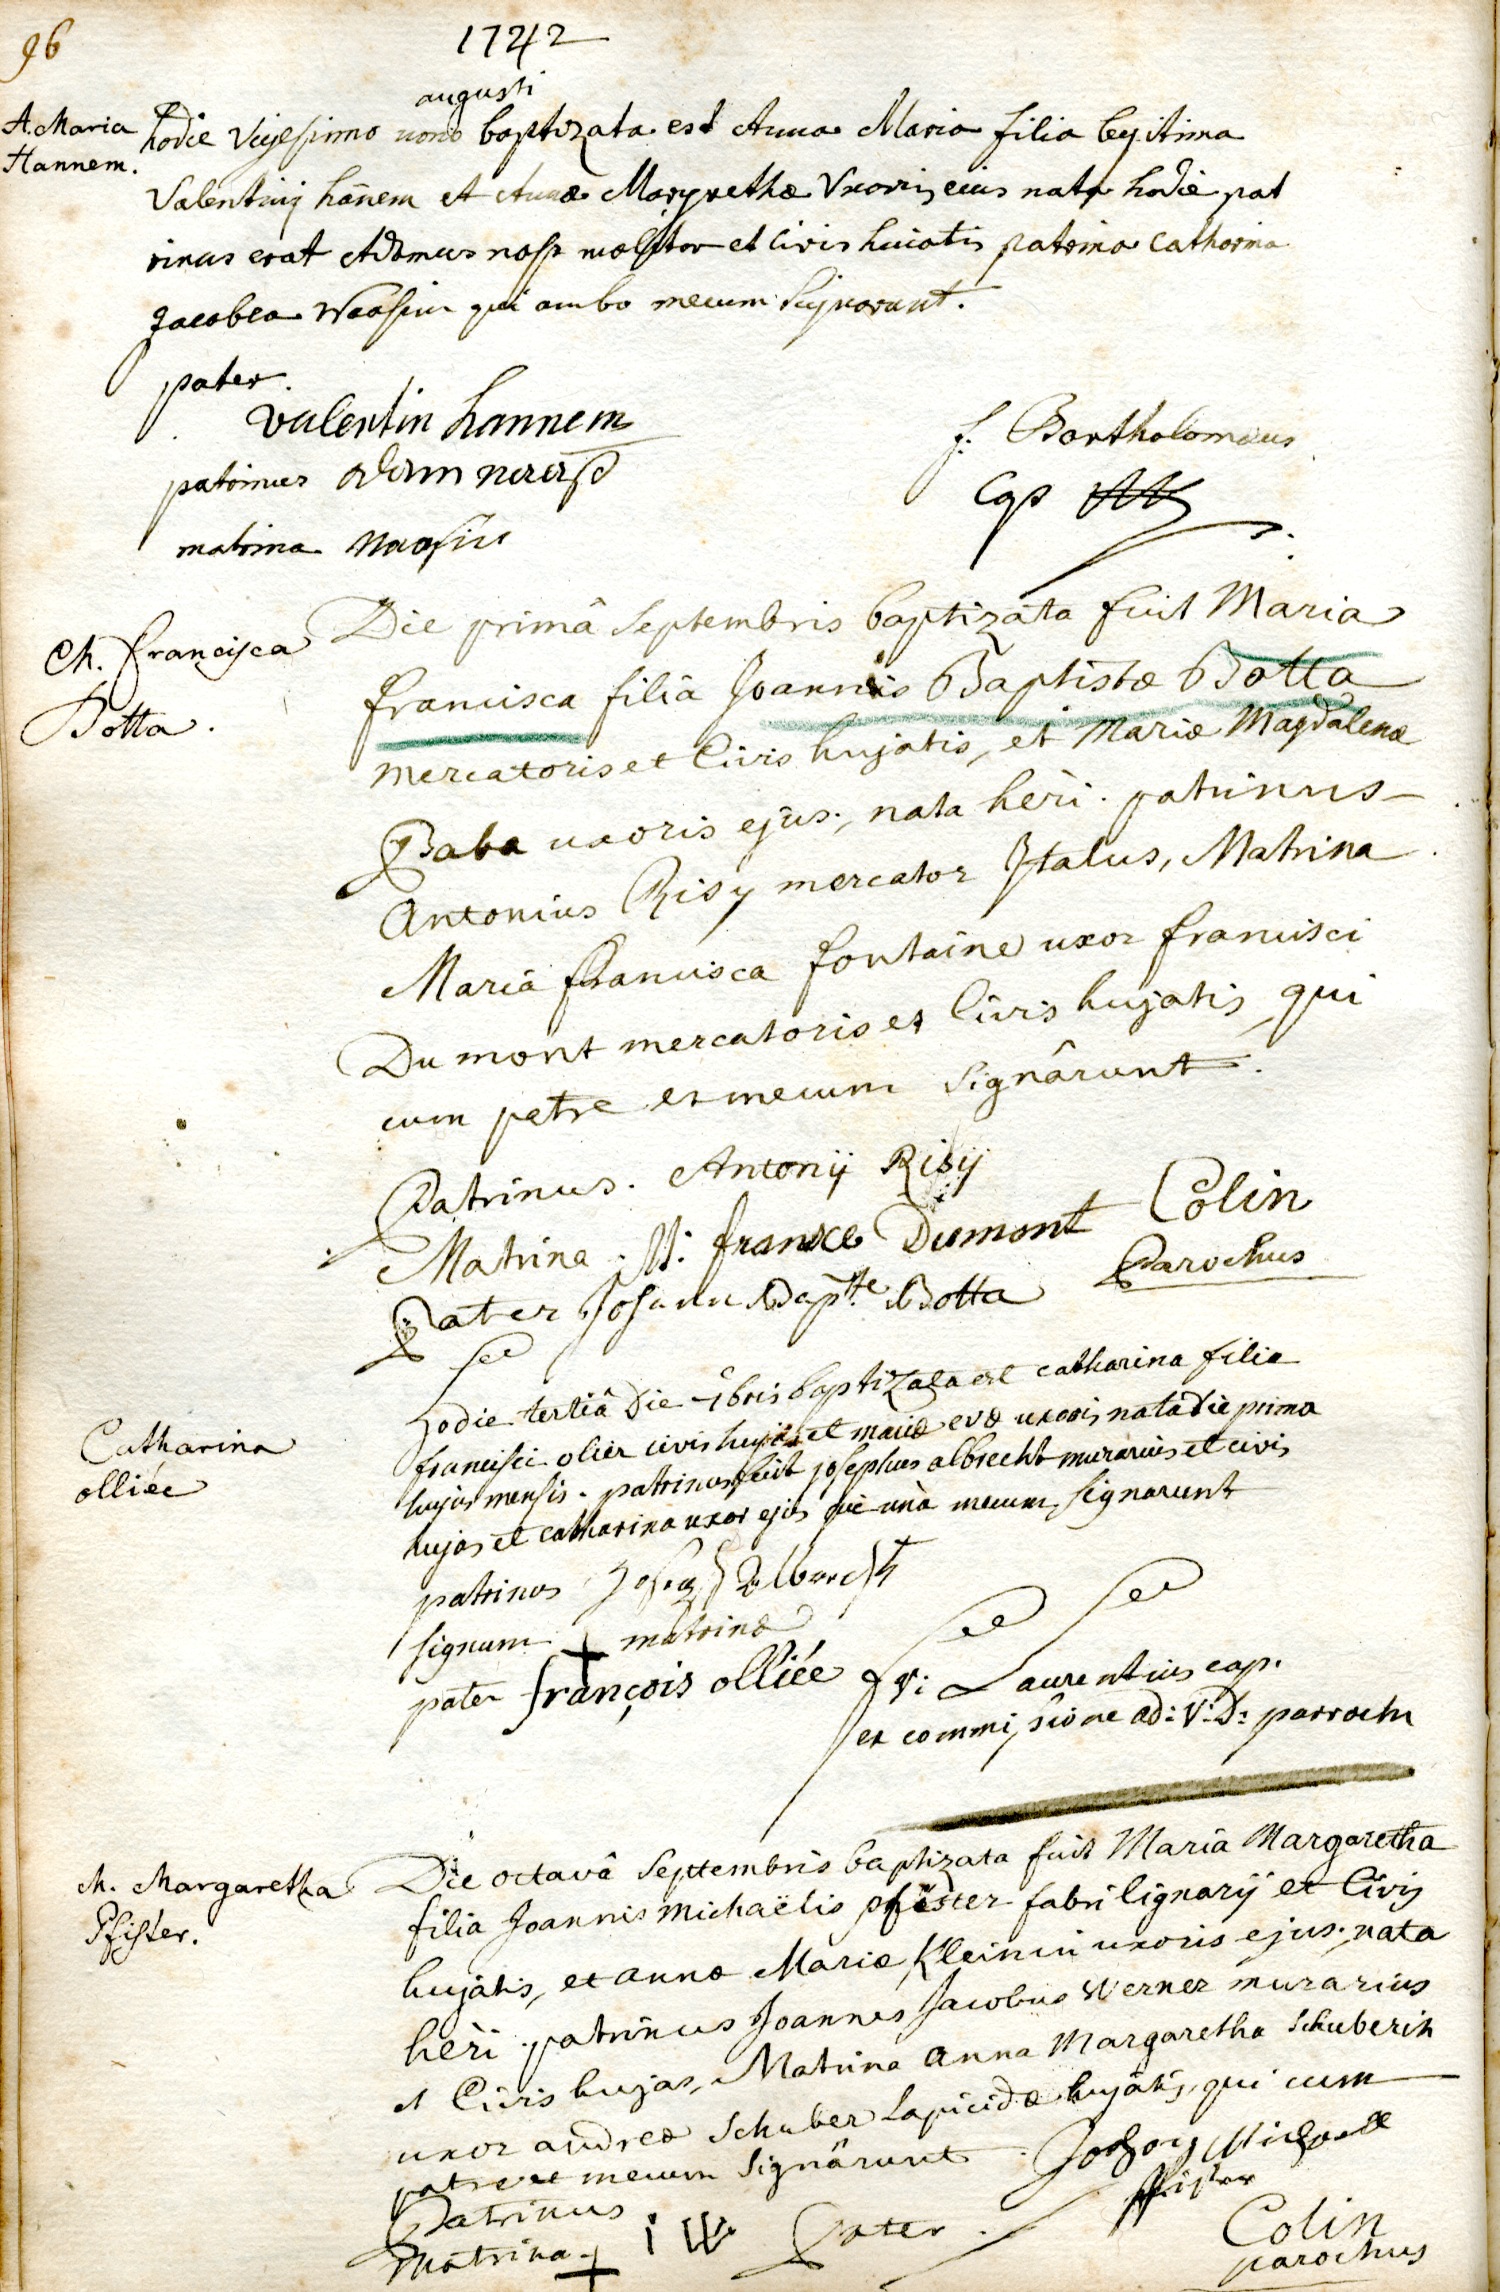 96
1742
augusti
A. Maria
Hannem.
hodie Vigesimo nono baptizata est Anna Maria filia legitima
Valentinij hanem et Annæ Margrethæ Vxoris eius nata hodie pat
rinus erat Adamus molitor et civis huiatis patrina Catharina
Jacobea qui ambo mecum signarunt.
pater.
valentin hannem
patrinus adam
matrina
f. Bartholomæus
Cap
M. Francisca
Botta.
Die primâ Septembris baptizata fuit Maria
francisca filia Joannis Baptistæ Botta
mercatoris et Civis hujatis, et Mariæ Magdalenæ
Baba uxoris ejus., nata heri. patrinus
Antonius Risy mercator Italus, Matrina
Maria francisca fontaine uxor francisci
Du mont mercatoris et Civis hujatis, qui
cum patre et mecum signârunt.
Patrinus. Antonij Risij
Matrina. M: france Dumont
Colin
Parochus
Pater Johann Bapte. Botta
Catharina
olliée
hodie tertiâ Die 7bris baptizata est catharina filia
francisci olier civis hujas et mariæ evæ uxoris nata die prima
hujus mensis. patrinus fuit josephus albrecht murarius et civis
hujas et catharina uxor ejus qui unà mecum signarunt
patrinus Joseph Albrecht
signum + matrinæ
pater françois olliée
fr: Laurentius cap.
ex commissione ad: V: D: parrochi
M. Margaretha
Pfister.
Die octavâ Septembris baptizata fuit Maria Margaretha
filia Joannis michaëlis pfister fabri lignarij et Civis
hujatis, et annæ Mariæ Kleinin uxoris ejus., nata
heri. patrinus Joannes Jacobus Werner murarius
et Civis hujas, Matrina anna Margaretha Schuberin
uxor andreæ Schuber lapicidæ hujatis, qui cum
patre et mecum signârunt.
Johan Michael
Pfister
Patrinus
i W
Pater.
Matrina +
Colin
parochus